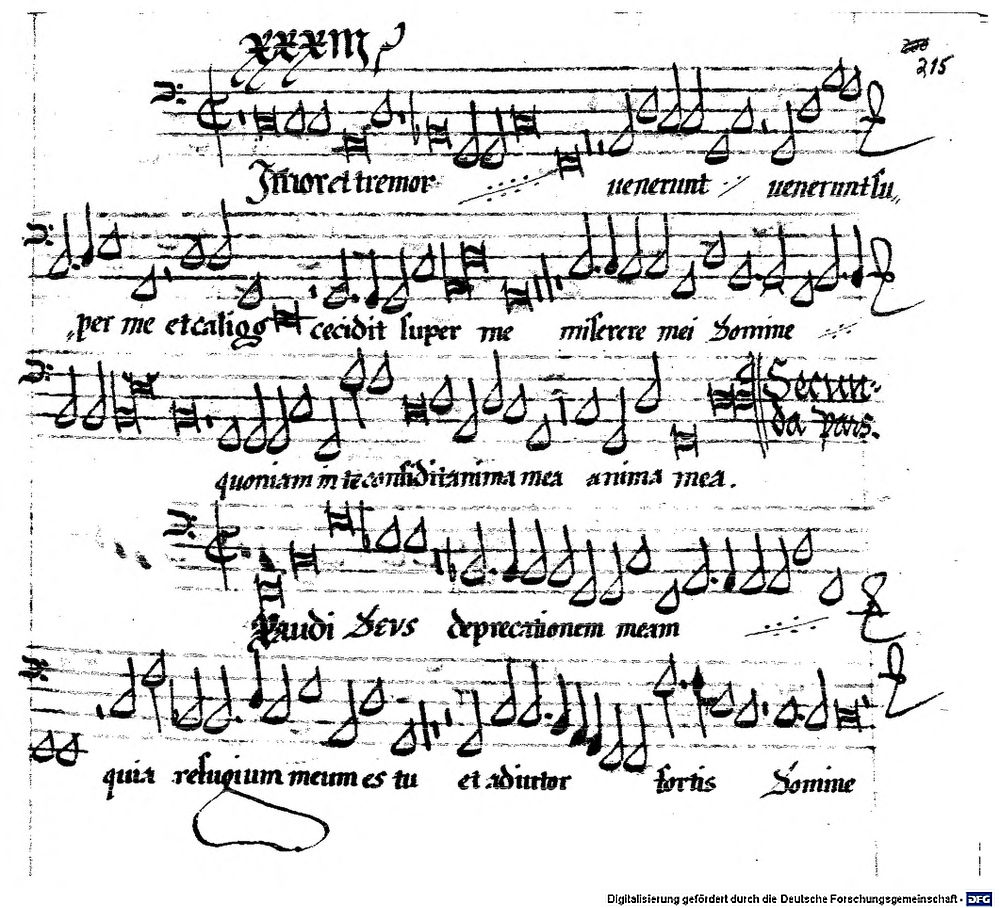 XXXIII
215
Timor et tremor uenerunt uenerunt su„
„per me et caligo cecidit super me miserere mei Domine
Secun=
da pars.
quoniam in te confidit anima mea anima mea.
Exaudi Deus deprecationem meam
quia refugium meum es tu et adiutor fortis Domine
Digitalisierung gefördert durch die Deutsche Forschungsgemeinschaft - DFG